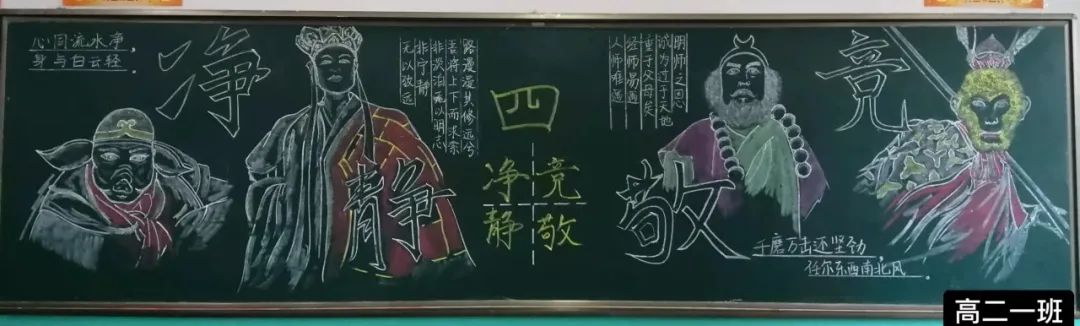 心同流水净，
身与白云轻。
净
路漫漫其修远兮
吾将上下而求索
非淡泊无以明志
非宁静
无以致远
静
四
净竞
静敬
明师之恩
诚为过于天地
重于父母矣
经师易遇
人师难遇
敬
竞
千磨万击还坚劲，
任尔东西南北风。
高二一班